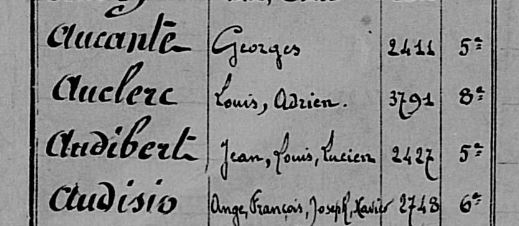 Aucante Georges 2411 5e
Auclerc Louis, Adrien. 3791 8e
Audibert Jean, Louis, Lucien 2427 5e
Audisio Ange, François, Joseph, Xavier 2748 6e